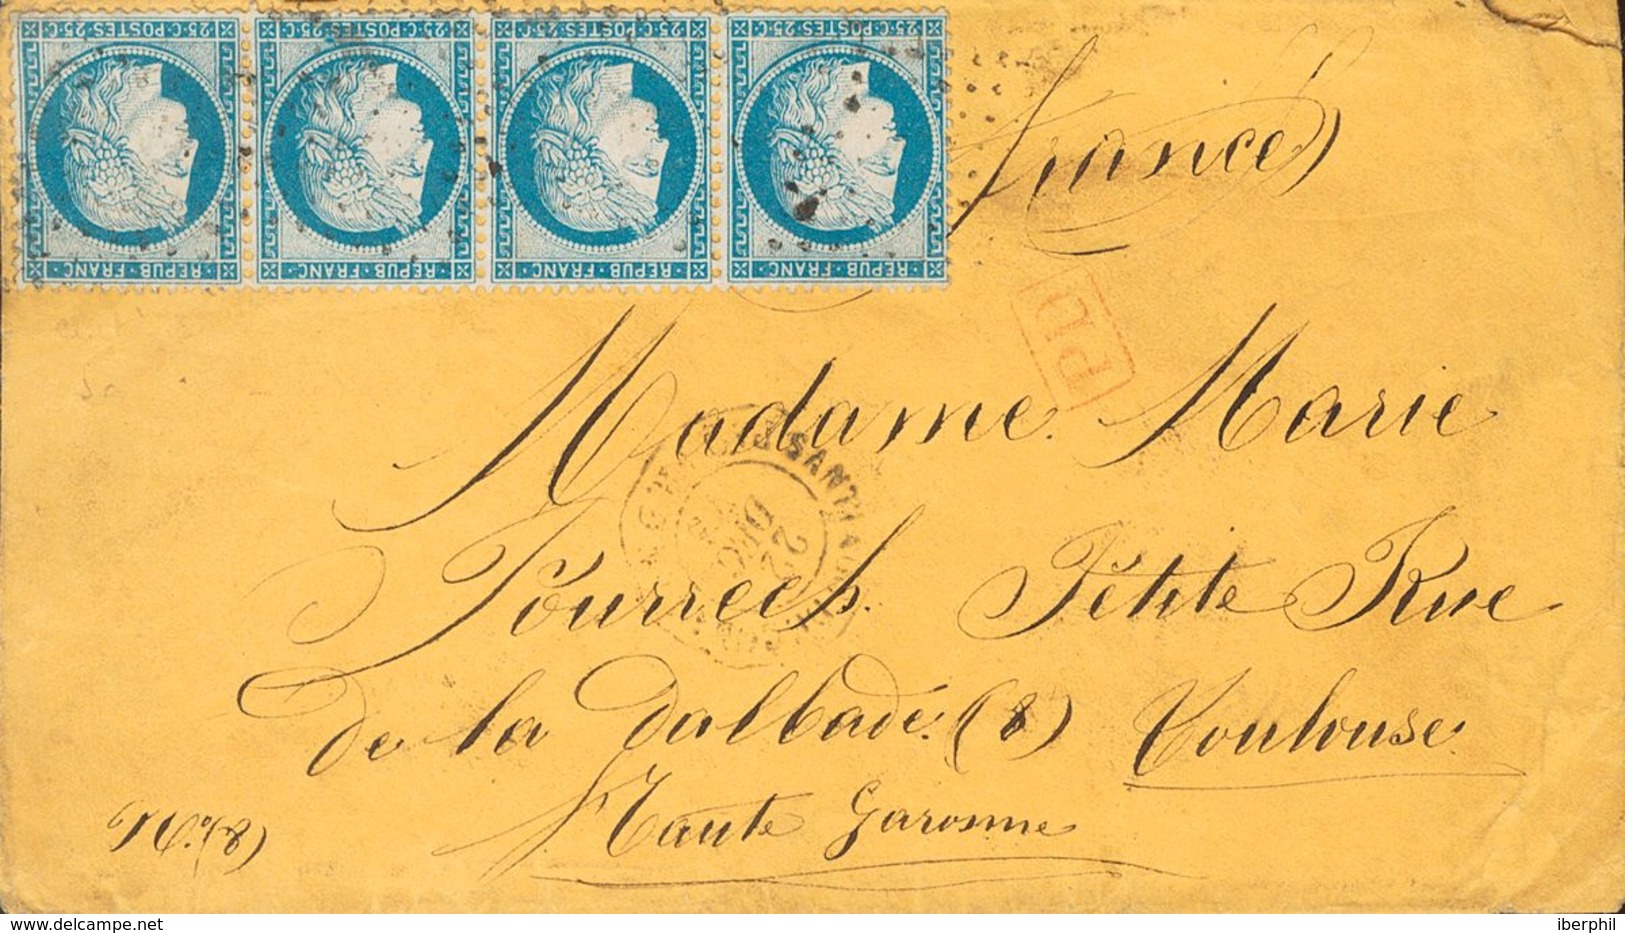 25·C·POSTES·25·C 25·C·POSTES·25·C 25·C·POSTES·25·C 25·C·POSTES·25·C
REPUB·FRANC· REPUB·FRANC· REPUB·FRANC· REPUB·FRANC·
france
PD
Madame Marie
Pourrech. Pétite Rue
22
DEC
de la Dalbade. (8) Toulouse
Haute Garonne
N.º (8)
delcampe.net
iberphil